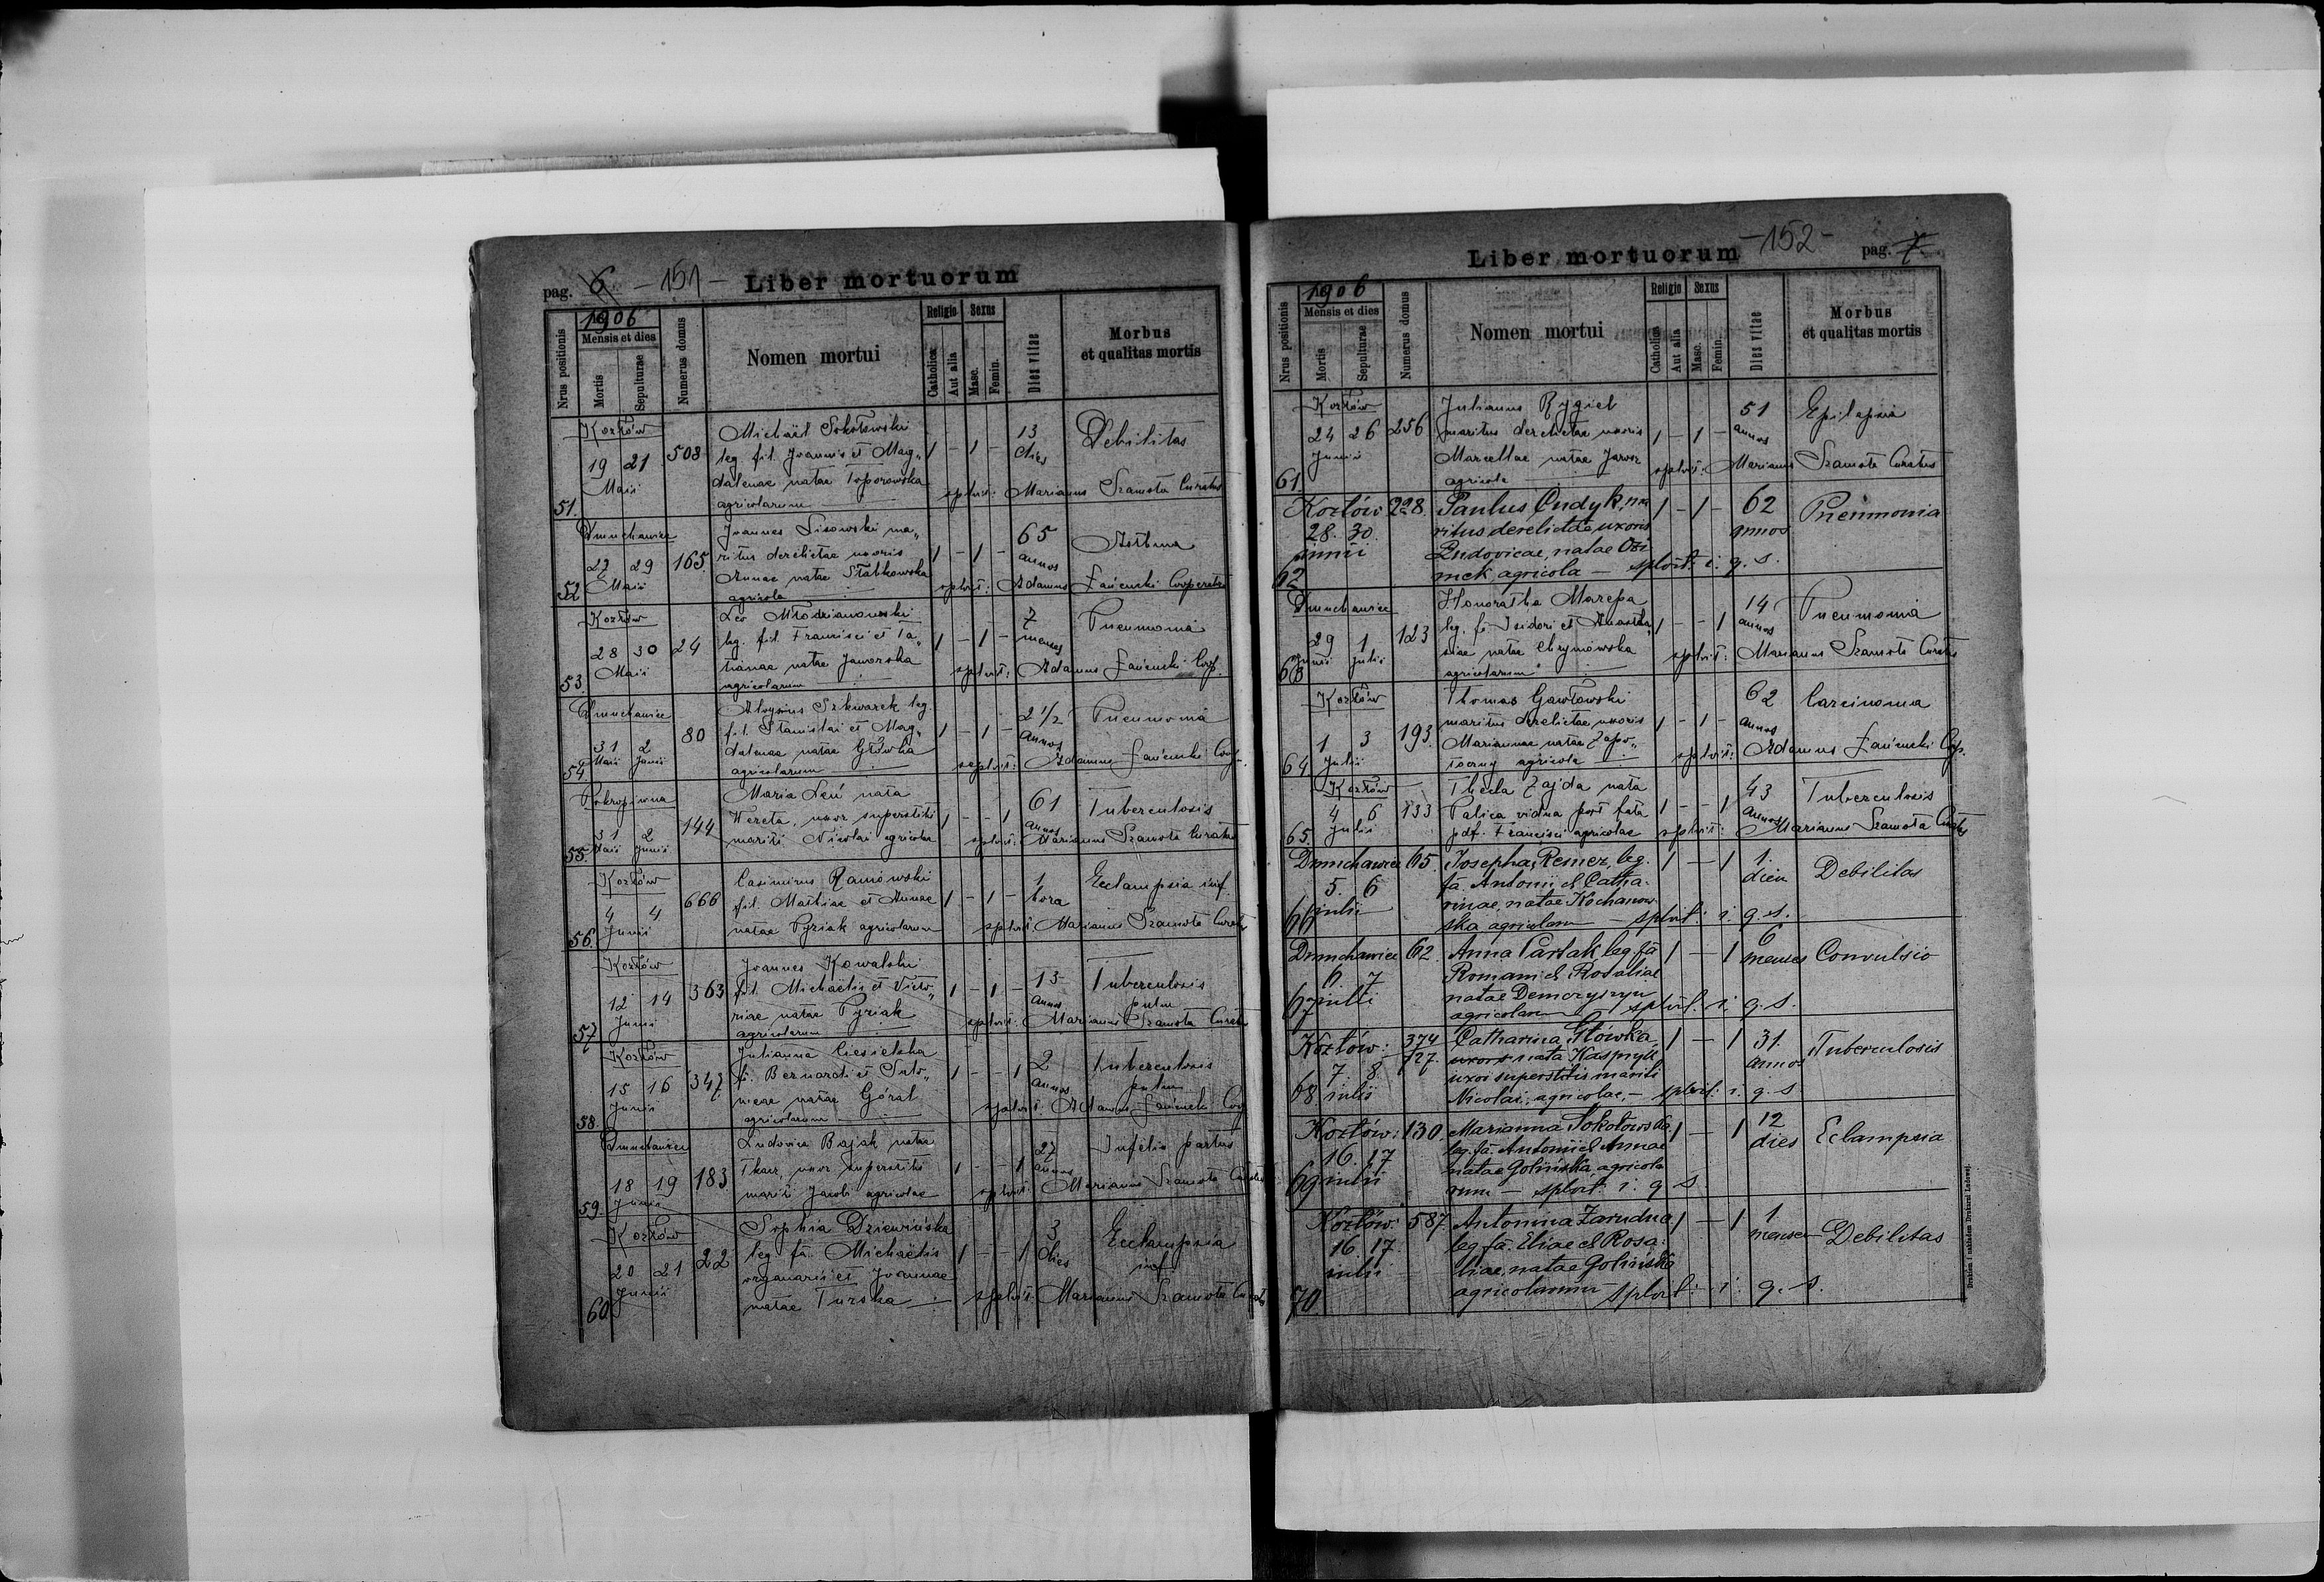 pag. 6 - 151 - Liber mortuorum
Nrus positionis
1906
Mensis et dies
Mortis
Sepulturae
Numerus domus
Nomen mortui
Religio
Catholica
Aut alia
Sexus
Masc.
Femin.
Dies vitae
Morbus
et qualitas mortis
Kozłów
Michaël Sokołowski 13 Debilitas
19 21 508 leg. fil. Joannis et Mag„ 1 - 1 - dies
Maii dalenae natae Toporowska
51. agricolarum splvit: Marianus Szamota Curatus
Dmuchawice
Joannes Lisowski ma„ 65 Asthma
29 165 ritus derelictae uxoris 1 - 1 - annos
52 Maii Annae natae Stabkowska
agricola splvit: Adamus Łańcucki Cooperator
Kozłów
Leo Młodzianowski 7 Pneumonia
28 30 24 leg. fil. Francisci et Ta„ 1 - 1 - menses
Maii tianae natae Jaworska
53. agricolarum splvit: Adamus Łańcucki Coop.
Dmuchawice
Aloysius Szkwarek leg. 2 1/2 Pneumonia
31 2 80 fil. Stanislai et Mag„ 1 - 1 - annos
Maii Junii dalenae natae Główka
54. agricolarum splvit: Adamus Łańcucki Coop.
Pokropiwna
Maria Leń nata 61 Tuberculosis
31 2 144 Wereta, uxor superstitis 1 - - 1 annos
55. Maii Junii mariti Nicolai agricolae splvit: Marianus Szamota Curatus
Kozłów
Casimirus Ramowski 1 Eclampsia inf.
4 4 666 fil. Mathiae et Annae 1 - 1 - hora
56. Junii natae Pyziak agricolarum splvit Marianus Szamota Curatus
Kozłów
Joannes Kowalski 13 Tuberculosis
12 14 363 fil. Michaëlis et Victo„ 1 - 1 - annos pulm
57 Junii riae natae Pyziak
agricolarum splvit: Marianus Szamota Curatus
Kozłów
Julianna Ciesielska 2 Tuberculosis
15 16 347 fa. Bernardi et 1 - - 1 annos pulm
Junii nicae natae Góral
58. agricolarum splvit: Adamus Łańcucki Coop
Dmuchawice
Ludovica Bajak nata 27 Infelix partus
18 19 183 Tkacz, uxor superstitis 1 - - 1 annos
59. Junii mariti Jacobi agricolae splvit: Marianus Szamota Curatus
Kozłów
Sophia Dziewińska 3 Eclampsia
20 21 22 leg. fa. Michaëlis 1 - - 1 dies inf.
Junii organarii et Joannae
60 natae Turska splvit: Marianus Szamota Curatus
Liber mortuorum - 152 - pag. 7
Nrus positionis
1906
Mensis et dies
Mortis
Sepulturae
Numerus domus
Nomen mortui
Religio
Catholica
Aut alia
Sexus
Masc.
Femin.
Dies vitae
Morbus
et qualitas mortis
Kozłów
Julianus Rygiel 51 Epilepsia
24 26 256 maritus derelictae uxoris 1 - 1 - annos
Junii Marcellae natae Jawor
61 agricola splvit: Marianus Szamota Curatus
Kozłów 228. Paulus Cudyk, ma 1 - 1 - 62 Pneumonia
28. 30. ritus derelictae uxoris annos
junii Ludovicae, natae Ozi
62 mek, agricola — splvit: i. q. s.
Dmuchawice
Honoratha Marepa 14 Pneumonia
29 1 123 leg. fa. Isidori et Anasta„ 1 - - 1 annos
Junii Julii siae natae Chrymowska
63 agricolarum splvit: Marianus Szamota Curatus
Kozłów
Thomas Gawłowski 62 Carcinoma
1 3 193. maritus derelictae uxoris 1 - 1 - annos
Julii Mariannae natae Zapo„
64 toczny agricola splvit: Adamus Łańcucki Cop.
Kozłów
Thecla Zajda nata 43 Tuberculosis
4 6 133 Palica vidua post fata 1 - - 1 annos
65. Julii pdf. Francisci agricolae splvit: Marianus Szamota Curatus
Dmuchawice 65. Josepha Remez, leg. 1 - 1 1. Debilitas
5. 6 fa. Antonii et Catha- diem
julii rinae, natae Kochanow
66 ska agricolarum — splvit: i. q. s.
Dmuchawice 62. Anna Partak leg. fa 1 - 1 6 Convulsio
6. 7 Romani et Rosaliae menses
67 julii natae Demczyszyn
agricolarum splvit: i. q. s.
Kozłów: 374 Catharina Główka, 1 - 1 31. Tuberculosis
127. uxor nata Kaspryk annos
7 8. uxor superstitis mariti
68 julii Nicolai, agricolae, — splvit: i. q. s.
Kozłów: 130. Marianna Sokołowska 1 - 1 12 Eclampsia
16. 17 leg. fa. Antonii et Annae dies
natae Golińska, agricola
69 julii rum — splvit: i. q. s.
Kozłów: 587. Antonina Zarudna 1 - 1 1 Debilitas
16. 17. leg. fa. Eliae et Rosa- mensem
julii liae, natae Golińska
70 agricolarum splvit: i. q. s.
Drukiem i nakładem Drukarni Ludowej.